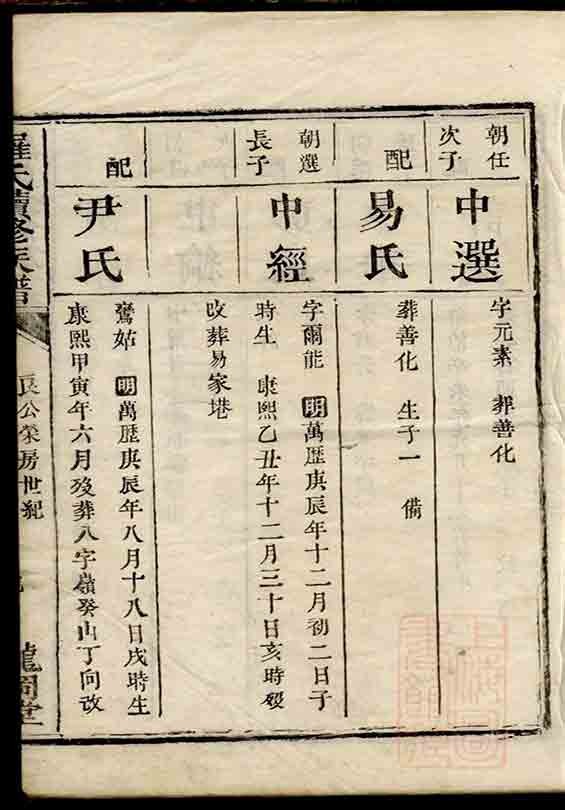 朝任
次子
中選
字元素 葬善化
配
易氏
葬善化 生子一 備
朝選
長子
中經
字爾能 明萬歷庚辰年十二月初二日子
時生 康熙乙丑年十二月三十日亥時歿
改葬易家塂
配
尹氏
鸞姑 明萬歷庚辰年八月十八日戌時生
康熙甲寅年六月歿葬八字嶺癸山丁向改
羅氏續修族譜
良公榮房世紀
龍岡堂